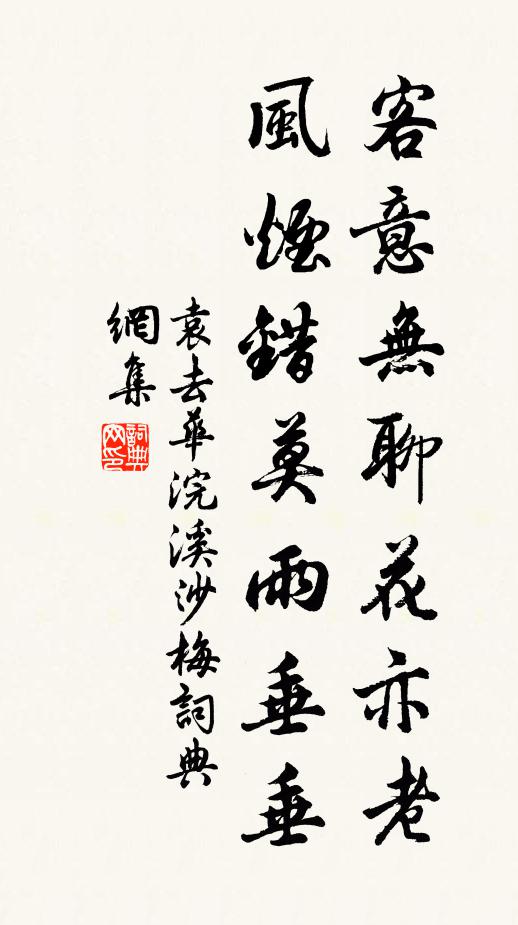 客意無聊花亦老
風煙錯莫雨垂垂
袁去華浣溪沙梅詞典
網集
詞典網印